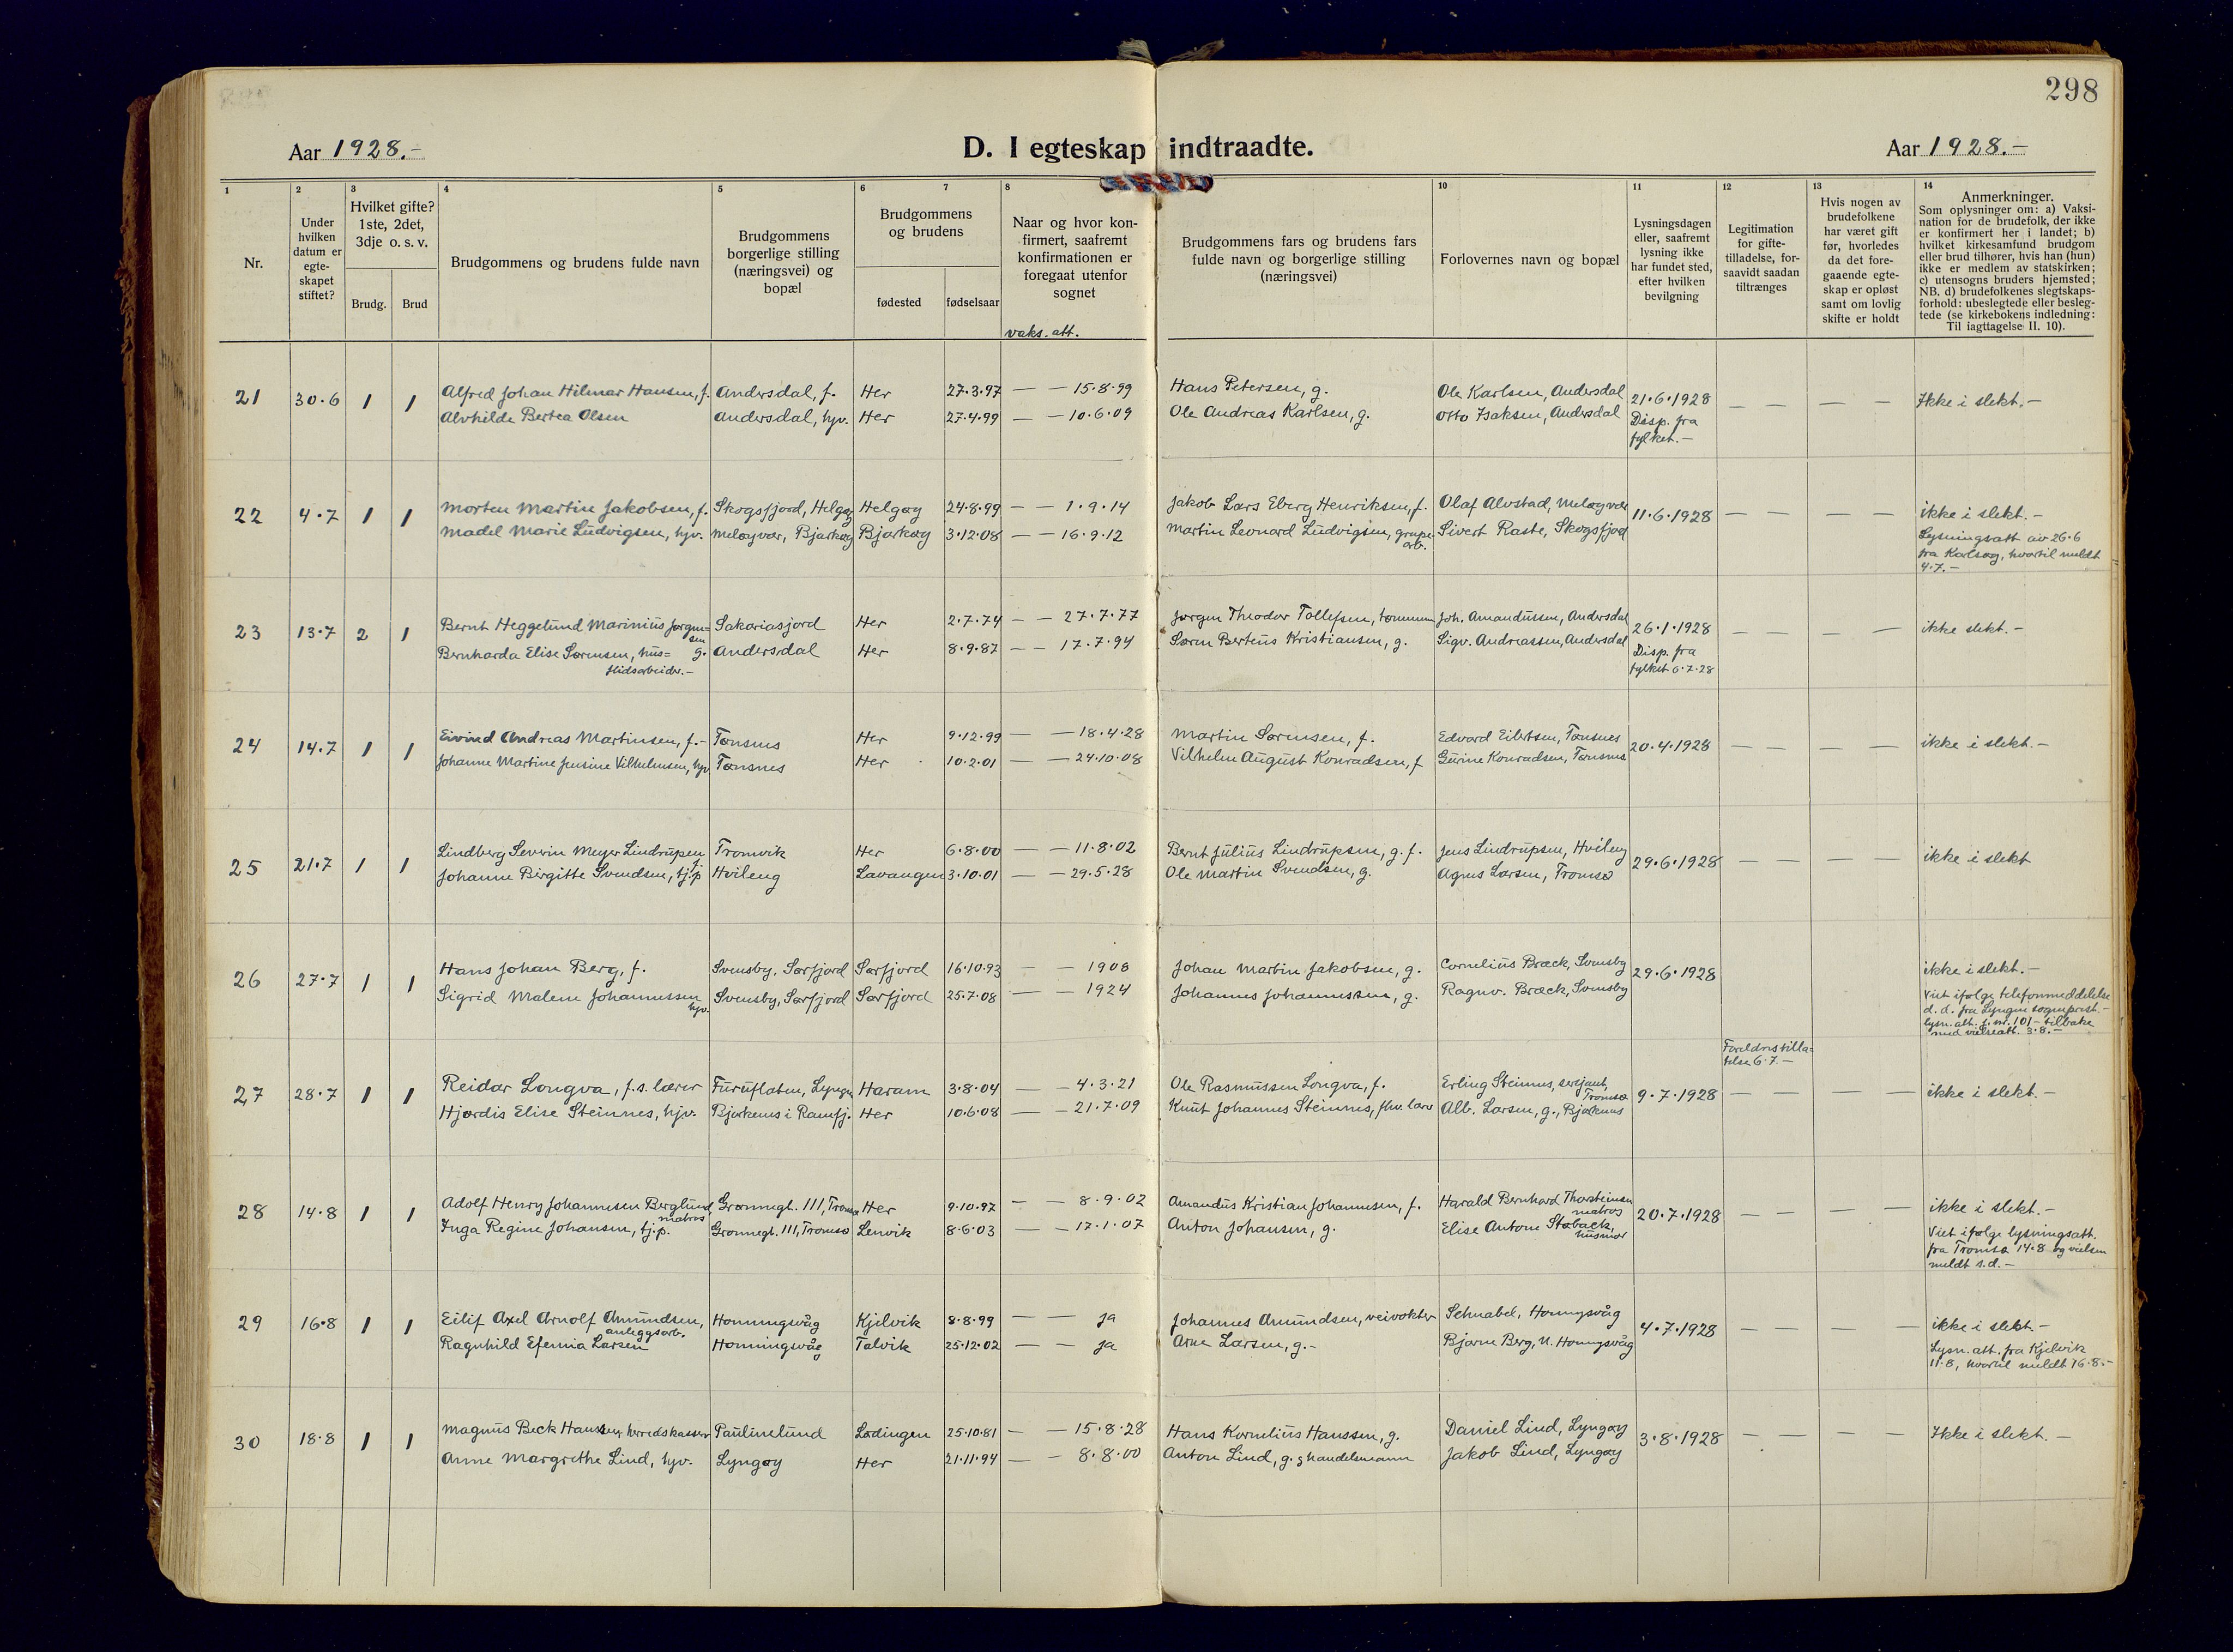 298
Aar 1928.-
D. I egteskap indtraadte.
Aar 1928.-
1 2 3 4 5 6 7 8 10 11 12 13 14
Nr.
Under hvilken datum er egte-skapet stiftet?
Hvilket gifte? 1ste, 2det, 3dje o. s. v.
Brudg. Brud
Brudgommens og brudens fulde navn
Brudgommens borgerlige stilling (næringsvei) og bopæl
Brudgommens og brudens
fødested fødselsaar
Naar og hvor kon-firmert, saafremt konfirmationen er foregaat utenfor sognet
vaks. att.
Brudgommens fars og brudens fars fulde navn og borgerlige stilling (næringsvei)
Forlovernes navn og bopæl
Lysningsdagen eller, saafremt lysning ikke har fundet sted, efter hvilken bevilgning
Legitimation for gifte-tilladelse, for-saavidt saadan tiltrænges
Hvis nogen av brudefolkene har været gift før, hvorledes da det fore-gaaende egte-skap er opløst samt om lovlig skifte er holdt
Anmerkninger.
Som oplysninger om: a) Vaksi-nation for de brudefolk, der ikke er konfirmert her i landet; b) hvilket kirkesamfund brudgom eller brud tilhører, hvis han (hun) ikke er medlem av statskirken; c) utensogns bruders hjemsted; NB. d) brudefolkenes slegtskaps-forhold: ubeslegtede eller besleg-tede (se kirkebokens indledning: Til iagttagelse II. 10).
21 30.6 1 1 Alfred Johan Hilmar Hansen, f. Andersdal, f. Her 27.3.97 — — 15.8.99 Hans Petersen, g. Ole Karlsen, Andersdal 21.6.1928 — — — — Ikke i slekt.-
Alvhilde Bertea Olsen Andersdal, hjv. Her 27.4.99 — — 10.6.09 Ole Andreas Karlsen, g. Otto Isaksen, Andersdal Disp. fra
fylket.-
22 4.7 1 1 Morten Martin Jakobsen, f. Skogsfjord, Helgøy Helgøy 24.8.99 — — 1.9.14 Jakob Lars Eberg Henriksen, f. Olaf Alvstad, Meløyvær 11.6.1928 — — — — ikke i slekt.-
Madel Marie Ludvigsen, hjv. Meløyvær, Bjarkøy Bjarkøy 3.12.08 — — 16.9.12 Martin Leonard Ludvigsen, grube-arb. Sivert Raste, Skogsfjord Lysningsatt av 26.6
fra Karlsøy, hvortil meldt
4.7.-
23 13.7 2 1 Bernt Heggelund Marinius Jørgen=sen g. Sakariasjord Her 2.7.74 — — 27.7.77 Jørgen Theodor Tollefsen, Joh. Amandussen, Andersdal 26.1.1928 — — — — ikke slekt.-
Bernharda Elise Sørensen, hus=flidsarbeider.- Andersdal Her 8.9.87 — — 17.7.94 Søren Berteus Kristiansen, g. Sigv. Andreassen, Andersdal Disp. fra
fylket 6.7.28
24 14.7 1 1 Eivind Andreas Martinsen, f.- Tønsnes Her 9.12.99 — — 18.4.28 Martin Sørensen, f. Edvard Eilertsen, Tønsnes 20.4.1928 — — — — ikke i slekt.-
Johanne Martine Jensine Vilhelmsen, hjv. Tønsnes Her 10.2.01 — — 24.10.08 Vilhelm August Konradsen, f. Gurine Konradsen, Tønsnes
25 21.7 1 1 Lindberg Severin Meyer Lindrupsen f. Tromvik Her 6.8.00 — — 11.8.02 Bernt Julius Lindrupsen, g. f. Jens Lindrupsen, Hvileng 29.6.1928 — — — — ikke i slekt
Johanne Birgitte Svendsen, tj.p Hvileng Lavangen 3.10.01 — — 29.5.28 Ole Martin Svendsen, g. Agnes Larsen, Tromsø
26 27.7 1 1 Hans Johan Berg, f. Svensby, Sørfjord Sørfjord 16.10.93 — — 1908 Johan Martin Jakobsen, g. Cornelius Bræck, Svensby 29.6.1928 ikke i slekt.-
Sigrid Malene Johannessen hjv. Svensby, Sørfjord Sørfjord 25.7.08 — — 1924 Johannes Johannessen, g. Ragnv. Bræck, Svensby Viet ifølge telefonmeddelelse
d. d. fra Lyngen sogneprest.-
lysn. att. j. nr. 101 - tilbake
med vielseatt. 3.8.-
Foreldres tilla=telse 6.7.-
27 28.7 1 1 Reidar Longva, f.s. lærer Furuflaten, Lyngen Haram 3.8.04 — — 4.3.21 Ole Rasmussen Longva, f. Erling Steinnes, sersjant, Tromsø 9.7.1928 — — — — ikke i slekt.-
Hjørdis Elise Steinnes, hjv. Bjørkenes i Ramfj. Her 10.6.08 — — 21.7.09 Knut Johannes Steinnes, fhv. lærer Alb. Larsen, g., Bjørkenes
28 14.8 1 1 Adolf Henry Johannesen Berglund, matros Grønnegt. 111, Tromsø Her 9.10.97 — — 8.9.02 Amandus Kristian Johannesen, f. Harald Bernhard Thorsteinsen matros 20.7.1928 — — — — ikke i slekt.-
Inga Regine Johansen, tj.p. Grønnegt. 111, Tromsø Lenvik 8.6.03 — — 17.1.07 Anton Johansen, g. Elise Antone Støback, husmor Viet ifølge lysningsatt.
fra Tromsø 14.8 og vielsen
meldt s.d.-
29 16.8 1 1 Eilif Axel Arnolf Amundsen, anleggsarb. Honningsvåg Kjelvik 8.8.99 — — ja Johannes Amundsen, veivokter Schnabel, Honnigsvåg 4.7.1928 — — — — ikke i slekt.-
Ragnhild Efemia Larsen Honningsvåg Talvik 25.12.02 — — ja Arne Larsen, g.- Bjarne Berg, N. Honnigsvåg Lysn. att. fra Kjelvik
11.8, hvortil meldt 16.8.-
30 18.8 1 1 Magnus Beck Hanssen, herredskasser Paulinelund Lødingen 25.10.81 — — 15.8.28 Hans Kornelius Hanssen, g. Daniel Lind, Lyngøy 3.8.1928 — — — — Ikke i slekt.-
Anne Margrethe Lind, hjv. Lyngøy Her 21.11.94 — — 8.8.00 Anton Lind, g. & handelsmann Jakob Lind, Lyngøy